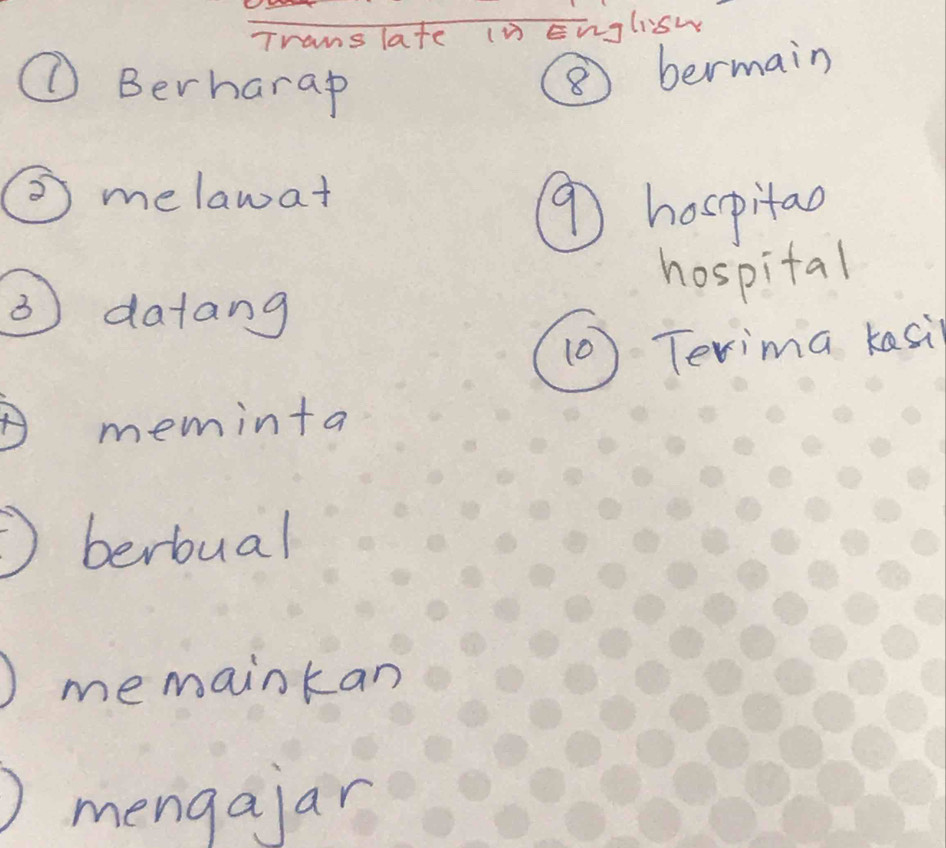 Translate in English
① Berharap
② melawat
③ datang
④ meminta
berbual
memainkan
mengajar
⑧ bermain
⑨ hospital
hospital
⑩ Terima kasih